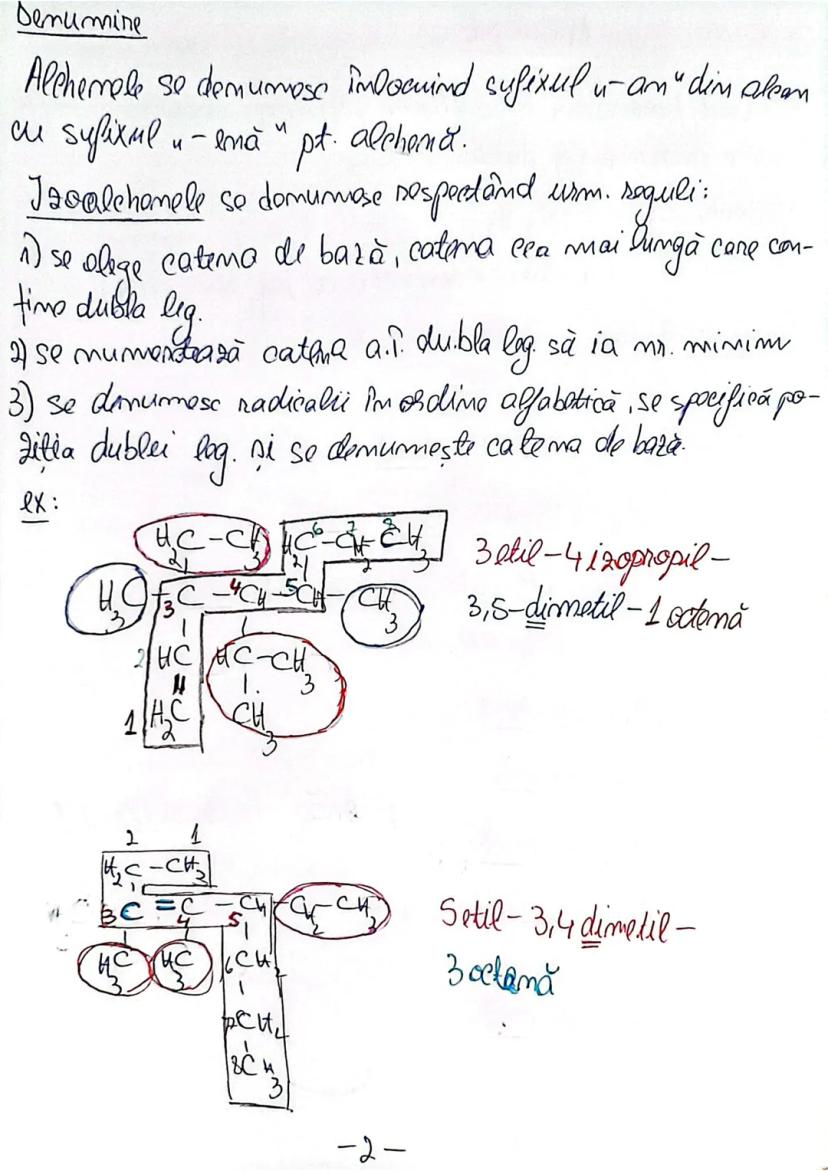 Denumire
Alchenele se denumesc înlocuind sufixul "-an" din alcan
cu sufixul "-enă" pt. alchenă.
Izoalchenele se denumesc respectând urm. reguli:
1) se alege catena de bază, catena cea mai lungă care con-
ține dubla leg.
2) se numerotează catena a.î. dubla leg. să ia nr. minim
3) se denumesc radicalii în ordine alfabetică, se specifică po-
ziția dublei leg. și se denumește catena de bază.
ex:
H2C-CH3 H2C6-CH2 7-CH3 8
H3C-C3-4CH-5CH-CH3
3etil-4izopropil-
3,5-dimetil-1octenă
2 HC HC-CH3
1 H2C CH3
2 1
H2C-CH3
3C=C4-CH5-CH2-CH3
5etil-3,4dimetil-
3octenă
H3C H3C 6CH2
7CH2
8CH3
-2-